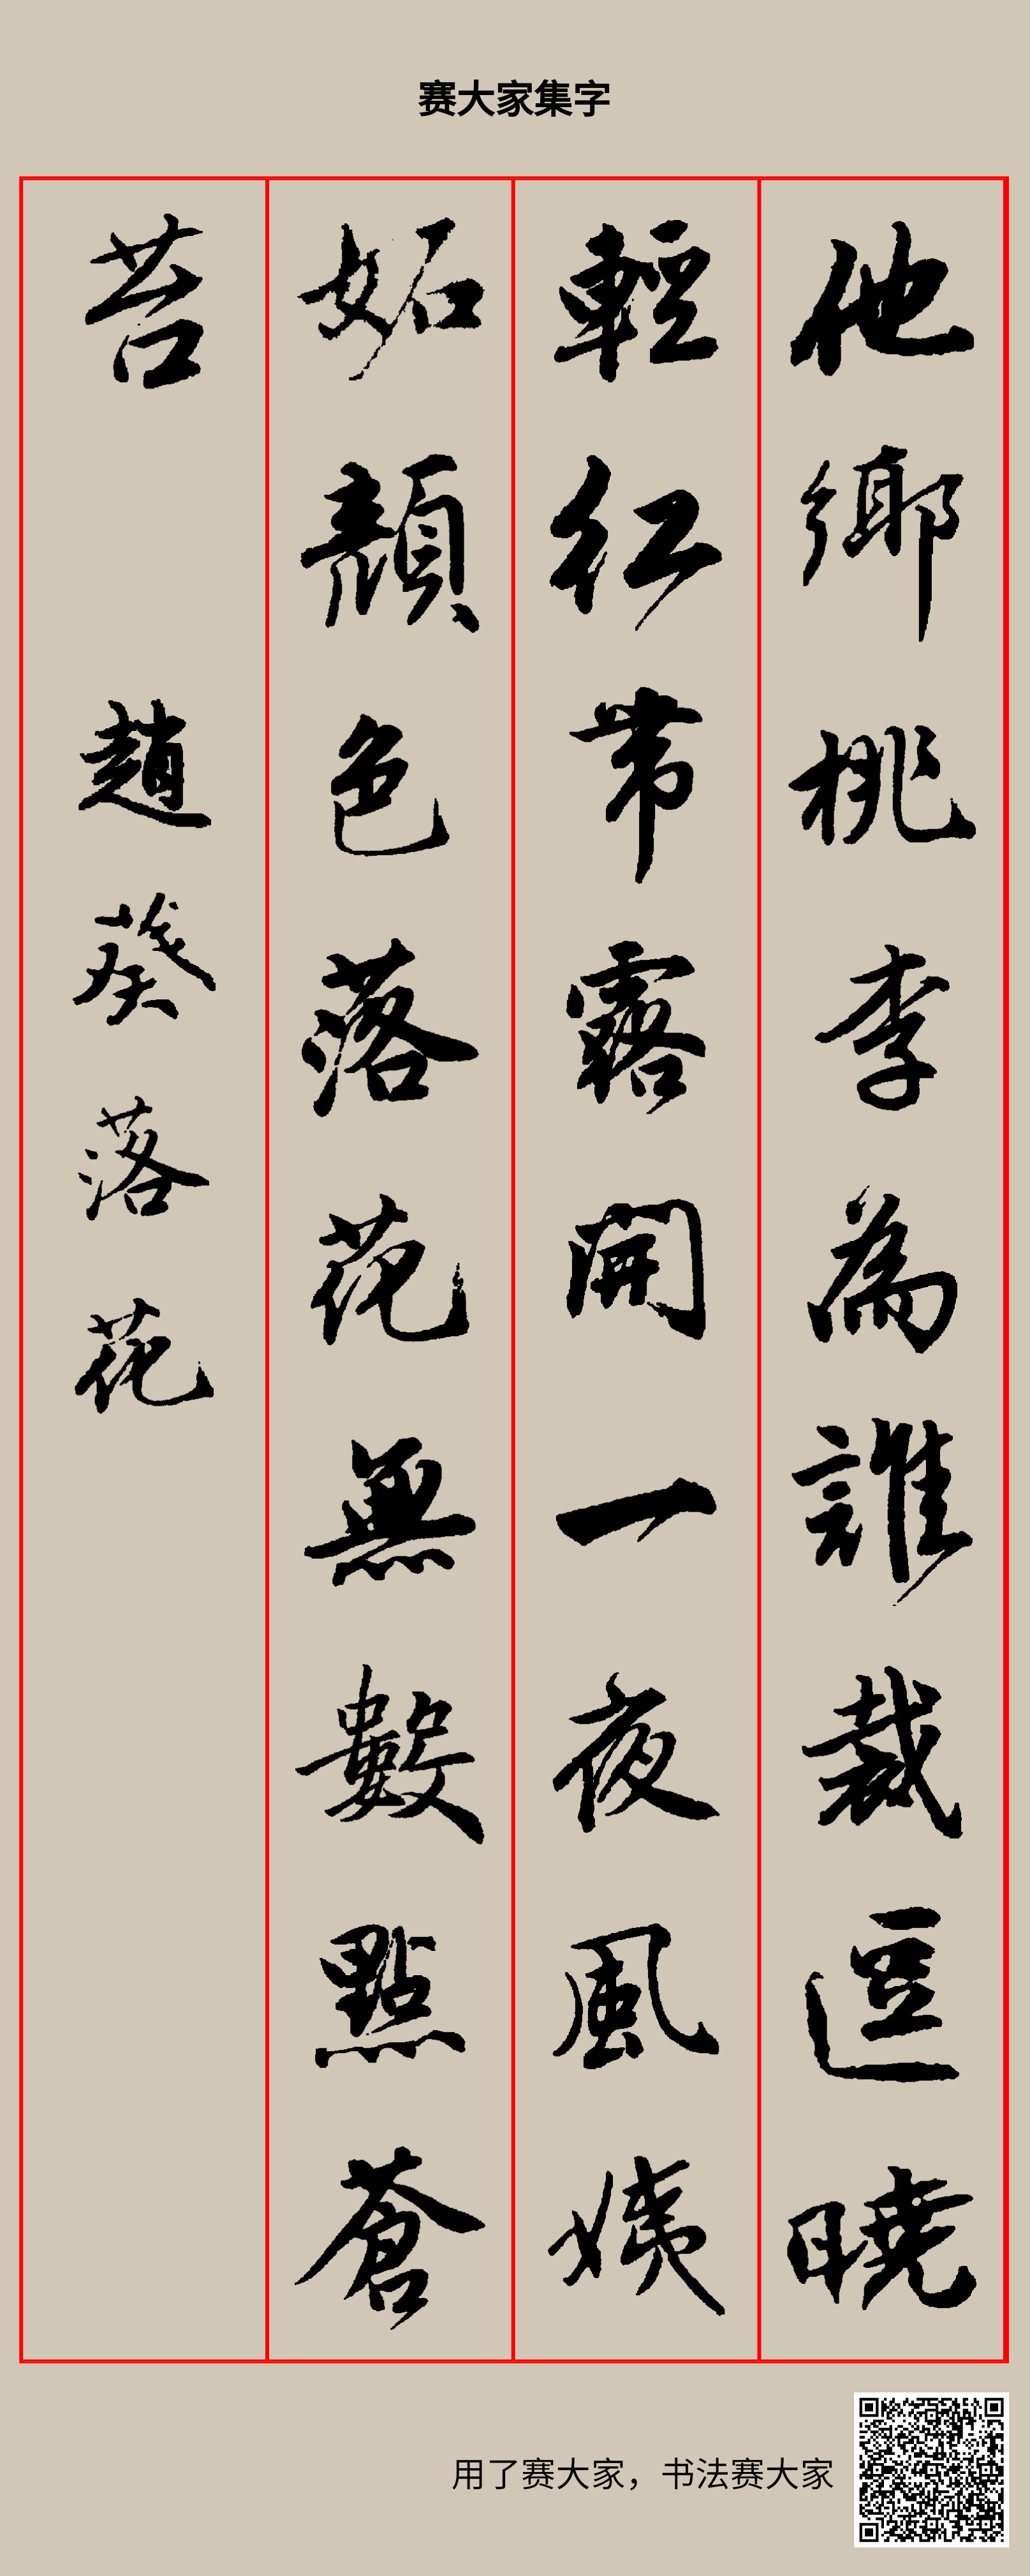 赛大家集字
他鄉桃李為誰裁逗曉
輕紅帶露開一夜風姨
妬顏色落花無數點蒼
苔
趙葵落花
用了赛大家，书法赛大家